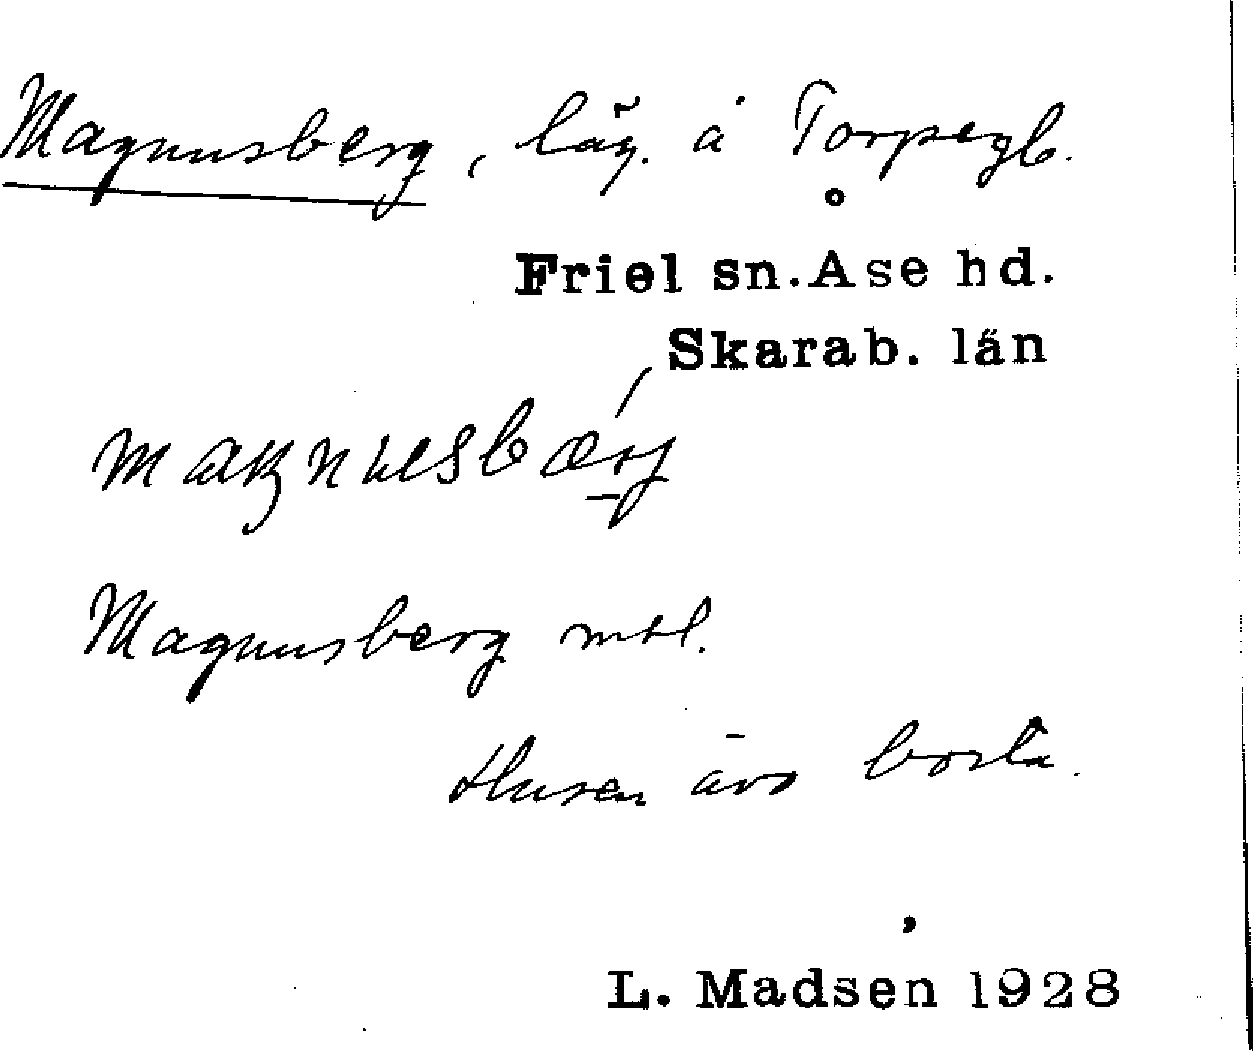 Magnusberg, läg. å Torpegb.
Friel sn. Åse hd.
Skarab. län
Magnusberg mtl.
Husen äro borta.
L. Madsen 1928